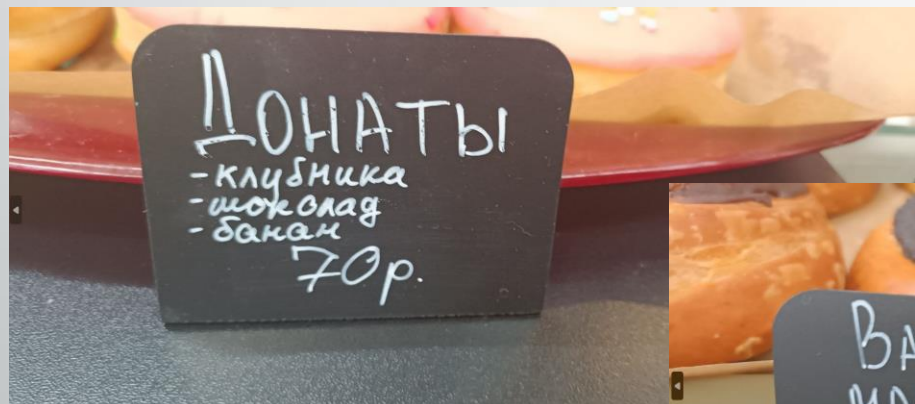 ДОНАТЫ
-клубника
-шоколад
-банан
70р.